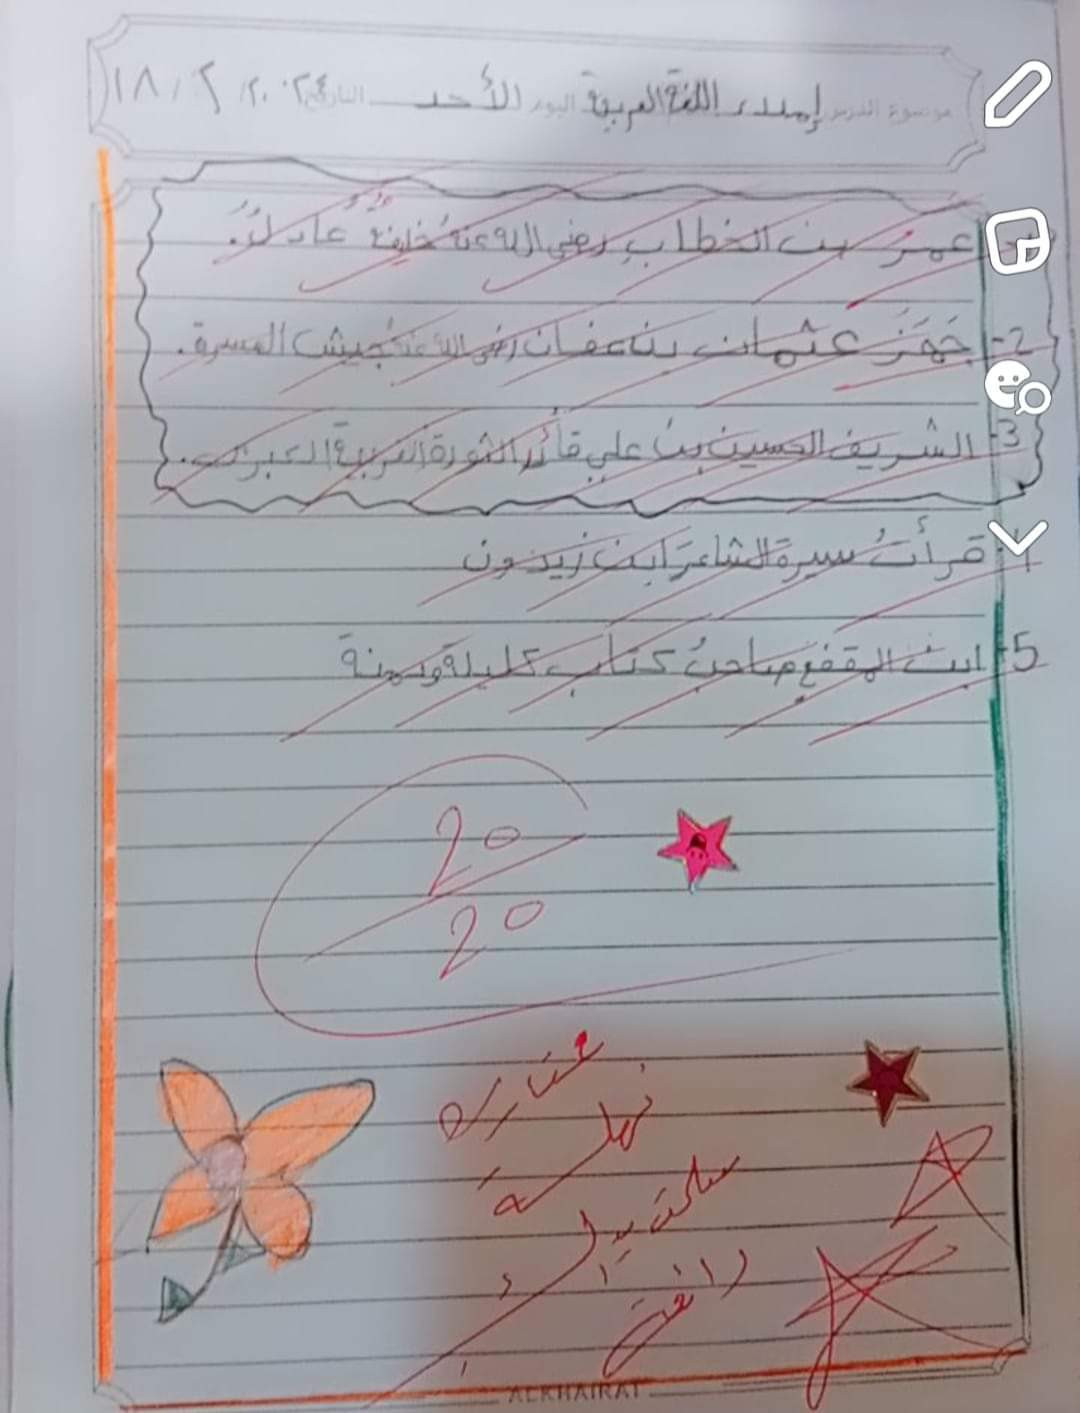 موضوع الدرس إملاء اللغة العربية اليوم الأحد التاريخ ١٨/٢/٢٠٢٤
عمرُ بن الخطاب رضي الله عنهُ خليفةٌ عادلٌ.
2- جَهَّزَ عثمان بن عفان رضي الله عنه جيش العسرة.
3- الشريف الحسين بن علي قائد الثورة العربية الكبرى.
قرأتُ سيرة الشاعر ابن زيدون
5- ابن المقفع صاحبُ كتاب كليلة ودمنة
20
20
ممتازة
رائعة
ALKHAIRAT